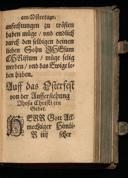 am Ostertage.
anfechtungen zu trösten
haben müge / und endlich
durch den selbigen deinen
lieben Sohn JHEsum
CHRistum / müge selig
werden / und das Ewige le-
ben haben.
Auff das Osterfest
von der Aufferstehung
JHesu Christi ein
Gebet.
HERR Gott All-
mechtiger Himli-
scher